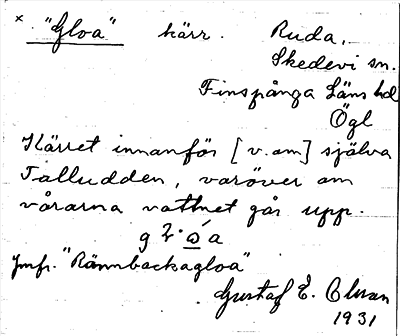 × "Gloa" kärr. Ruda,
Skedevi sn.
Finspånga Läns hd
Ögl
Kärret innanför [v. om] själva
Talludden, varöver om
vårarna vattnet går upp.
Jmfr. "Rännbackagloa"
Gustaf E. Olsson
1931